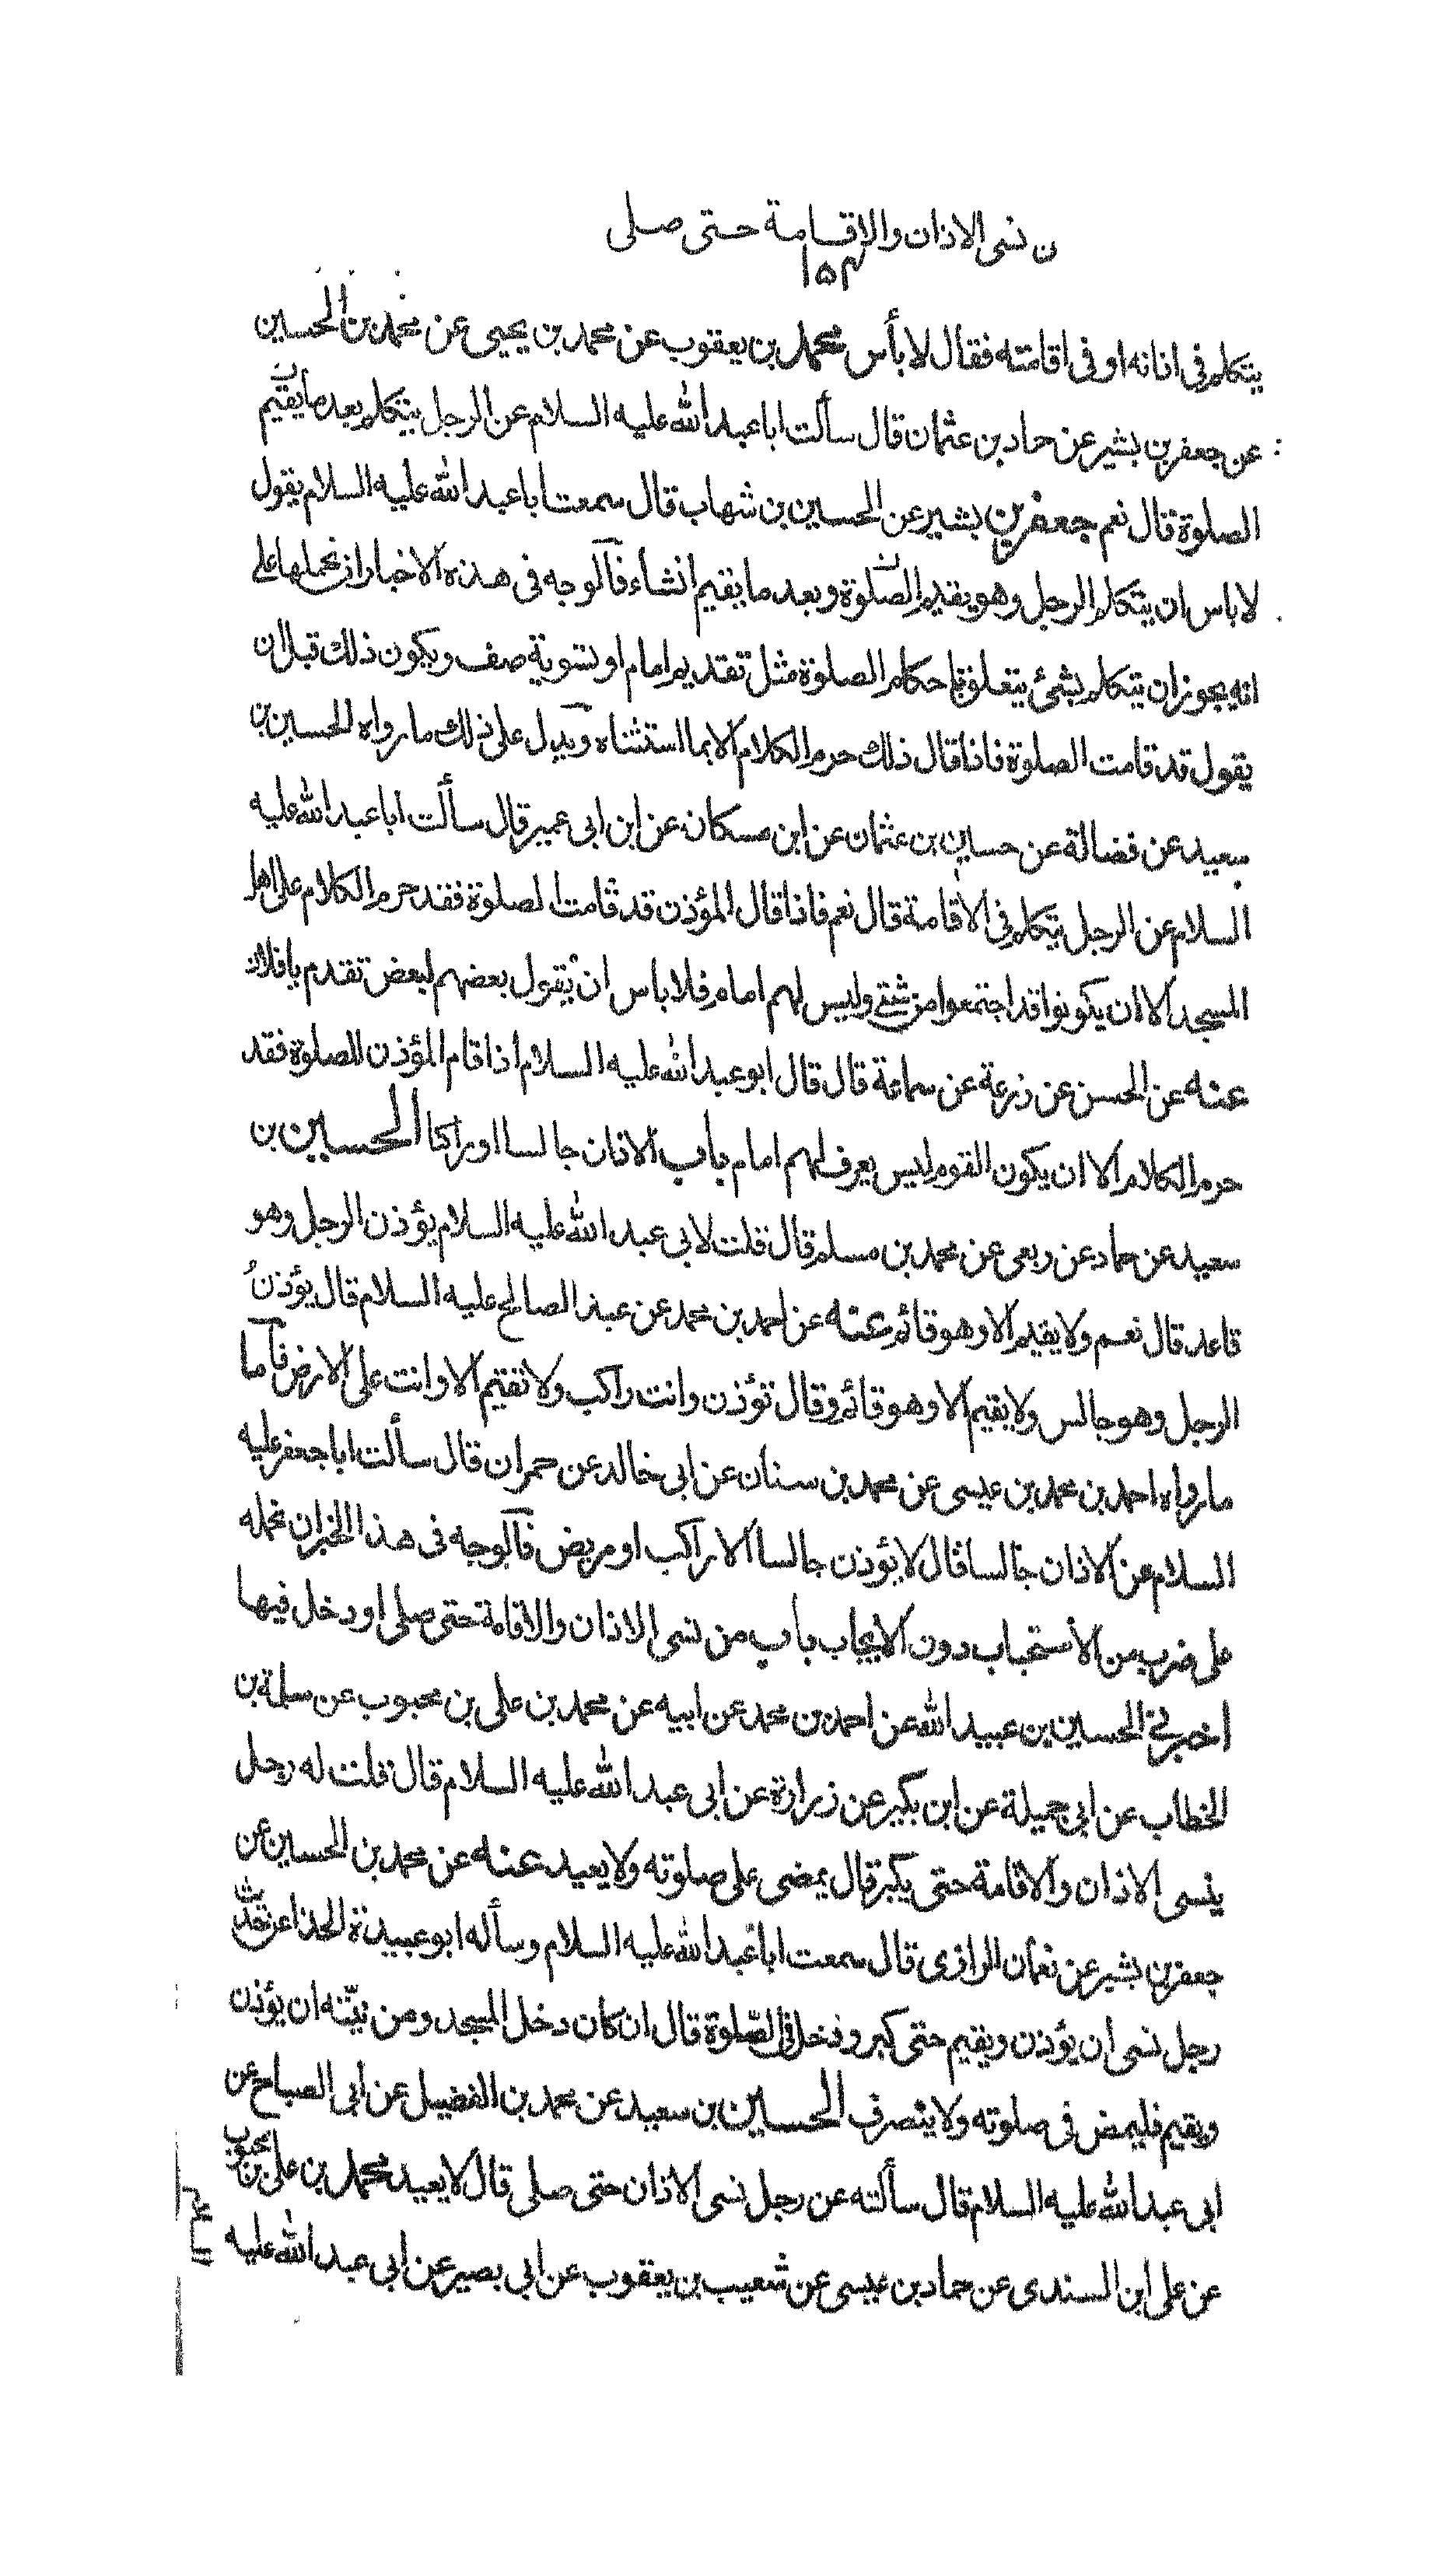 ن نسى الاذان والاقامة حتى صلى
١٥٣
يتكلم فى اذانه او فى اقامته فقال لا بأس محمد بن يعقوب عن محمد بن يحيى عن محمد بن الحسين
عن جعفر بن بشير عن حماد بن عثمان قال سألت ابا عبد الله عليه السلام عن الرجل يتكلم بعد ما يقيم
الصلوة قال نعم جعفر بن بشير عن الحسين بن شهاب قال سمعت ابا عبد الله عليه السلام يقول
لا باس ان يتكلم الرجل وهو يقيم الصلوة وبعد ما يقيم ان شاء فالوجه فى هذه الاخبار ان نحملها على
انه يجوز ان يتكلم بشئ يتعلق باحكام الصلوة مثل تقديم امام او تسوية صف ويكون ذلك قبل ان
يقول قد قامت الصلوة فاذا قال ذلك حرم الكلام الا بما استثناه ويدل على ذلك ما رواه الحسين بن
سعيد عن فضالة عن حسين بن عثمان عن ابن مسكان عن ابن ابى عمير قال سألت ابا عبد الله عليه
السلام عن الرجل يتكلم فى الاقامة قال نعم فاذا قال المؤذن قد قامت الصلوة فقد حرم الكلام على اهل
المسجد الا ان يكونوا قد اجتمعوا من شتى وليس لهم امام فلا باس ان يقول بعضهم لبعض تقدم يا فلان
عنه عن الحسن عن زرعة عن سماعة قال قال ابو عبد الله عليه السلام اذا قام المؤذن للصلوة فقد
حرم الكلام الا ان يكون القوم ليس يعرف لهم امام باب الاذان جالسا او راكبا الحسين بن
سعيد عن حماد عن ربعى عن محمد بن مسلم قال قلت لابى عبد الله عليه السلام يؤذن الرجل وهو
قاعد قال نعم ولا يقيم الا وهو قائم عنه عن احمد بن محمد عن عبد الصالح عليه السلام قال يؤذن
الرجل وهو جالس ولا يقيم الا وهو قائم وقال تؤذن وانت راكب ولا تقيم الا وانت على الارض فاما
ما رواه احمد بن محمد بن عيسى عن محمد بن سنان عن ابى خالد عن حمران قال سألت ابا جعفر عليه
السلام عن الاذان جالسا قال لا يؤذن جالسا الا راكب او مريض فالوجه فى هذا الخبر ان نحمله
على ضرب من الاستحباب دون الايجاب باب من نسى الاذان والاقامة حتى صلى او دخل فيها
اخبرنى الحسين بن عبيد الله عن احمد بن محمد عن ابيه عن محمد بن على بن محبوب عن سلمة بن
الخطاب عن ابى جميلة عن ابن بكير عن زرارة عن ابى عبد الله عليه السلام قال قلت له رجل
ينسى الاذان والاقامة حتى يكبر قال يمضى على صلوته ولا يعيد عنه عن محمد بن الحسين عن
جعفر بن بشير عن نعمان الرازى قال سمعت ابا عبد الله عليه السلام وسأله ابو عبيدة الحذا عن حديث
رجل نسى ان يؤذن ويقيم حتى كبر ودخل فى الصلوة قال ان كان دخل المسجد ومن نيته ان يؤذن
ويقيم فليمض فى صلوته ولا ينصرف الحسين بن سعيد عن محمد بن الفضيل عن ابى الصباح عن
ابى عبد الله عليه السلام قال سألته عن رجل نسى الاذان حتى صلى قال لا يعيد محمد بن على بن محبوب
عن على ابن السندى عن حماد بن عيسى عن شعيب بن يعقوب عن ابى بصير عن ابى عبد الله عليه